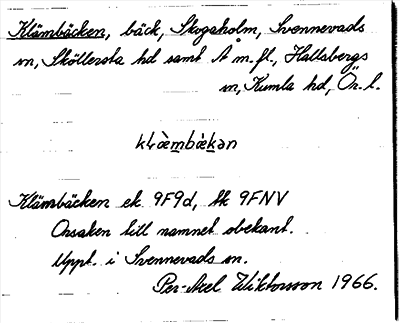 Klämbäcken, bäck, Skogaholm, Svennevads
sn, Sköllersta hd samt Å m. fl., Hallsbergs
sn, Kumla hd, Ör. l.
klæ̀mbæ̀kən
Klämbäcken ek 9F9d, tk 9FNV
Orsaken till namnet obekant.
Uppt. i Svennevads sn.
Per-Axel Wiktorsson 1966.